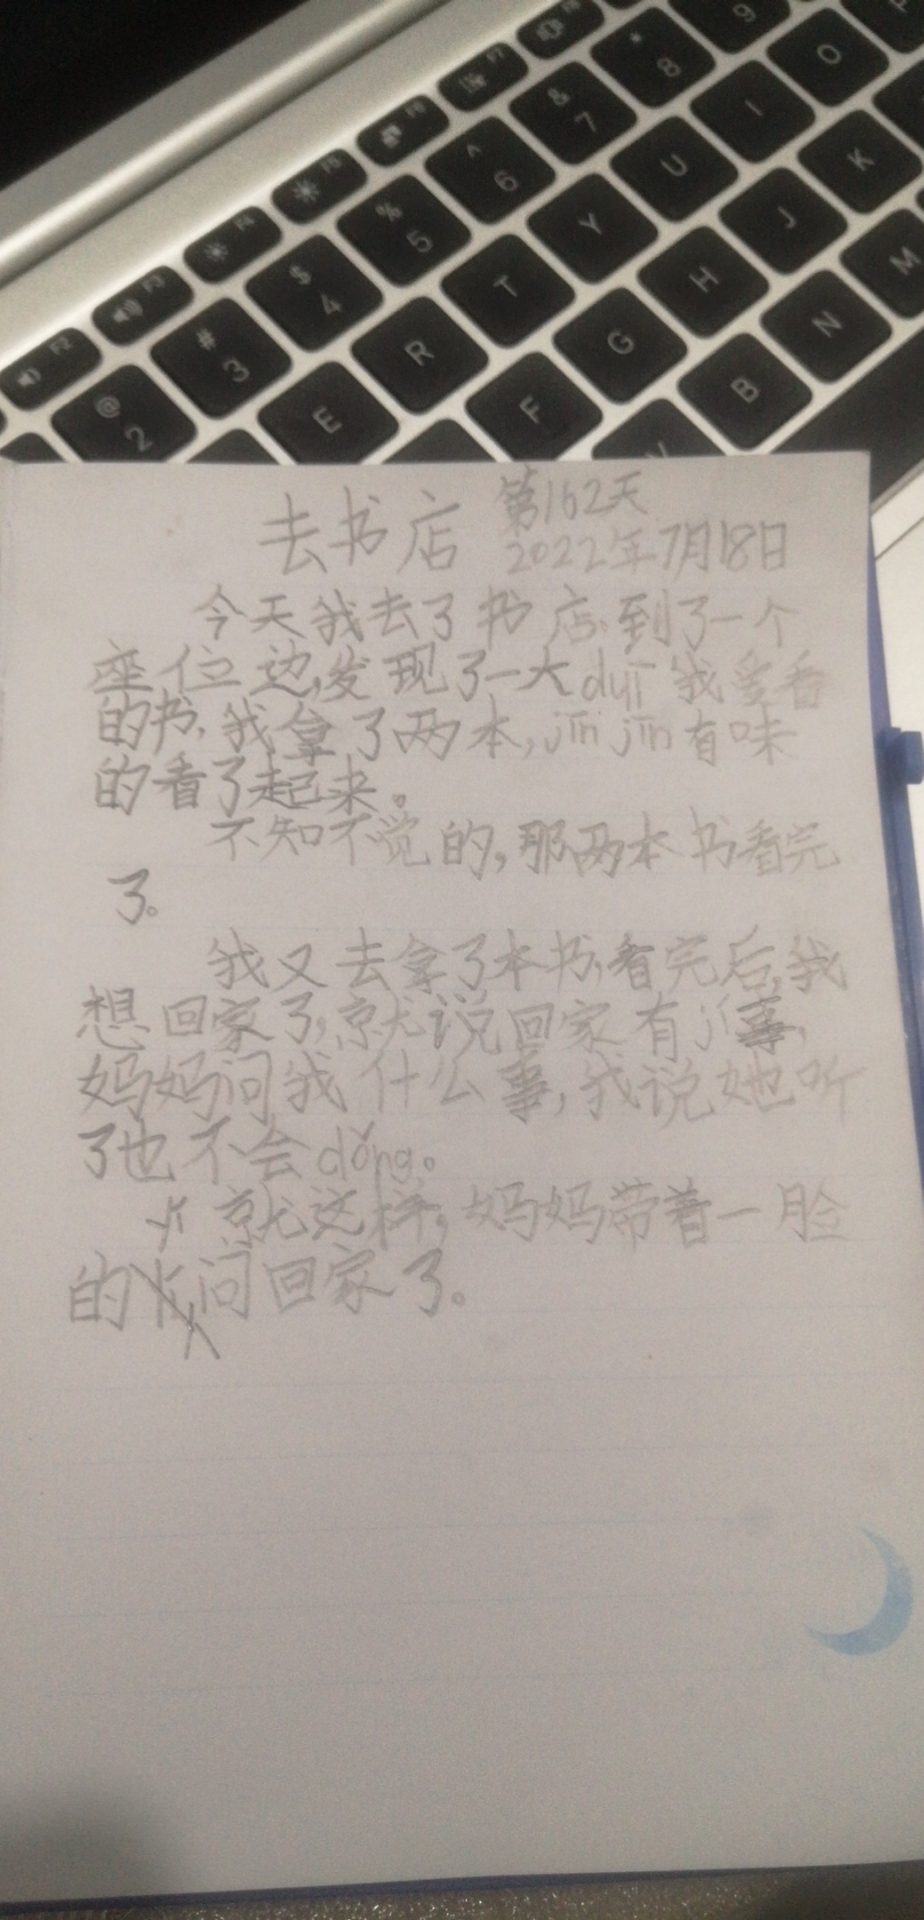 F2
F3
F4
F5
F6
F7
F8
@ 2
# 3
$ 4
% 5
^ 6
& 7
* 8
9
E R T Y U I O P
F G H J K
V B N M
去书店 第162天
2022年7月18日
今天我去了书店,到了一个
座位边,发现了一大duī我爱看
的书,我拿了两本,jīn jīn有味
的看了起来。
不知不觉的,那两本书看完
了。
我又去拿了本书,看完后,我
想回家了,就说回家有jí事,
妈妈问我什么事,我说她听
了也不会dǒng。
就这样,妈妈带着一脸
的问回家了。